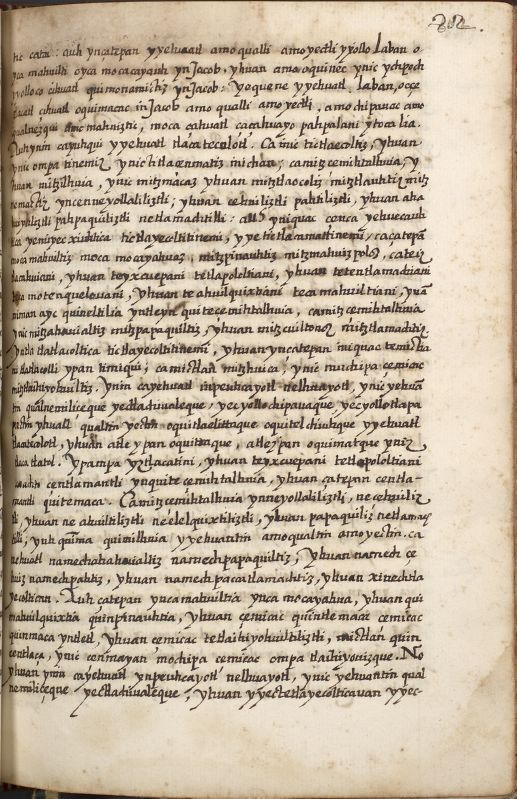 212.
tic catca: auh yncatepan yyehuatl amo qualli amo yectli yyollo Laban o-
yca mahuilti oyca mocacayauh ynJacob, yhuan amo oquinec ynic ychpoch
yyolloco cihuatl quimonamictiz ynJacob: Yequene yyehuatl Laban, occe
cihuatl oquimacac inJacob amo qualli amo yectli, amo chipauac amo
qualnezqui amo mahuiztic, moca cahuatl cacahuayo pahpalani ytoca lia.
Auhynin cayuhqui yyehuatl tlacatecolotl. Ca ynic tictlaecoltis, yhuan
ynic ompa tinemiz ynic titlacenmatiz michan; camitzcemihtalhuia, y
huan mitzilhuia, ynic mitzmacaz yhuan mitztlaocoliz mitztlauhtiz mitz
nemactiz yncenneyollaliliztli; yhuan cehuiliztli pahtiliztli, yhuan aha
huiyliztli pahpaquiliztli netlamachtilli: auh yniquac cenca yehuecauh
tica yeniyec xiuhtica tictlayecoltitinemi, yyetictlacamattinemi, cacatepan
moca mahuiltiz moca mocayahuaz, mitzpinauhtiz mitzmahuizpoloz, cateix
tlacahuiani, yhuan teyxcuepani tetlapololtiani, yhuan tetentlamachiani
teca motenquelouani, yhuan teahuilquixtiani teca mahuiltiani, yuan
niman ayc quineltilia yntleyn quitecemihtalhuia, camitzcemihtalhuia
ynic mitzahauialtiz mitzpapaquiltiz, yhuan mitzcuiltonoz mitztlamachtiz
yntla tlatlacoltica tictlayecoltitinemi, yhuan yncatepan miquac temictia
ni tlatlacolli ypan timiqui; camictlan mitzhuica, ynic muchipa cemicac
mitztlaihiyohuiltiz. Ynin cayehuatl inpeuhcayotl nelhuayotl, ynic yehuan
tin qualnemiliceque yectlachiualeque, yecyollochipauaque yecyollotlapa
yhuan qualtin yectin oquitlaelittaque oquitelchiuhque yyehuatl
tlacatecolotl, yhuan atle ypan oquittaque, atleypan oquimatque yniz
tlaca tlatol. Ypampa yztlacatini, yhuan teyxcuepani tetlapololtiani
centlamantli ynquitecemihtalhuia, yhuan çatepan centla-
mantli quitemaca. Camitzcemihtalhuia ynneyollaliliztli, necehuiliz
tli, yhuan ne ahuiltiliztli ne elelquixtiliztli, yhuan papaquiliz netlamach
tilli, yuh quinma quimilhuia yyehuantin amoqualtin amoyectin, ca
nehuatl namechahahauialtiz namechpapaquiltiz, yhuan namech ce
huiz namechpahtiz, yhuan namechpacatlamachtiz, yhuan xinechtla
yecolticann. Auh catepan ynca mahuiltia ynca mocayahua, yhuan qui
mahuilquixtia quinpinauhtia, yhuan çemicac quintlemaac cemicac
quinmaca yntletl, yhuan cemicac tetlaihiyohuiltiliztli, mictlan quin
centlaça, ynic cenmayan mochipa cemicac ompa tlaihiyouizque. No
yhuan ynin cayehuatl ynpeuhcayotl nelhuayotl, ynic yehuantin qual
nemiliçeque yectlachiualeque, yhuan yyectetlayecolticauan yyec-